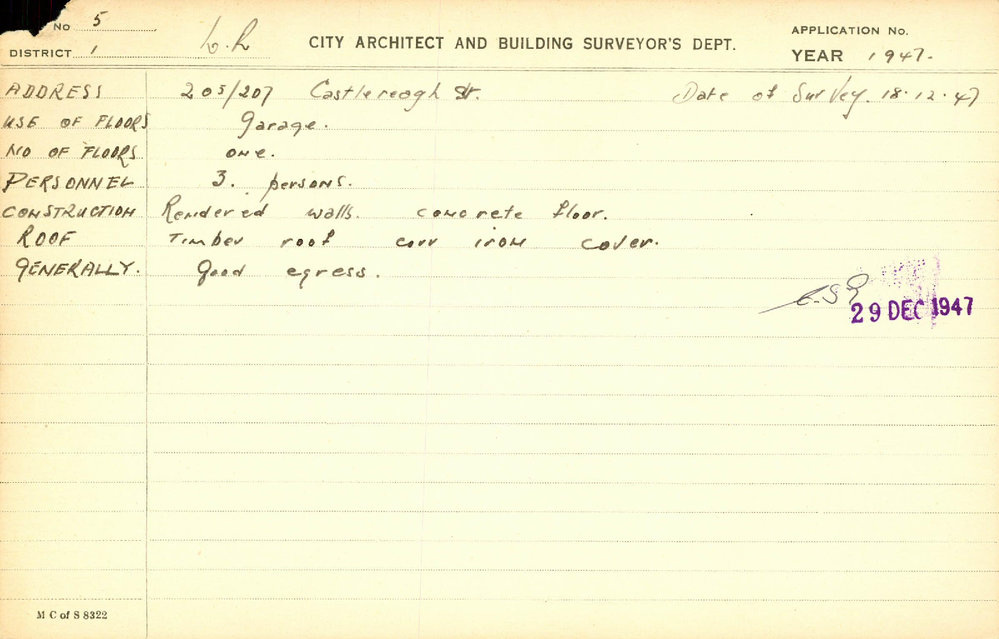 No 5
DISTRICT 1
L.R
CITY ARCHITECT AND BUILDING SURVEYOR'S DEPT.
APPLICATION No.
YEAR 1947.
ADDRESS 205/207 Castlereagh St. Date of Survey. 18.12.47
USE OF FLOORS garage.
NO OF FLOORS one.
PERSONNEL 3. persons.
CONSTRUCTION Rendered walls. concrete floor.
ROOF Timber roof corr iron cover.
GENERALLY. Good egress.
29 DEC 1947
M C of S 8322